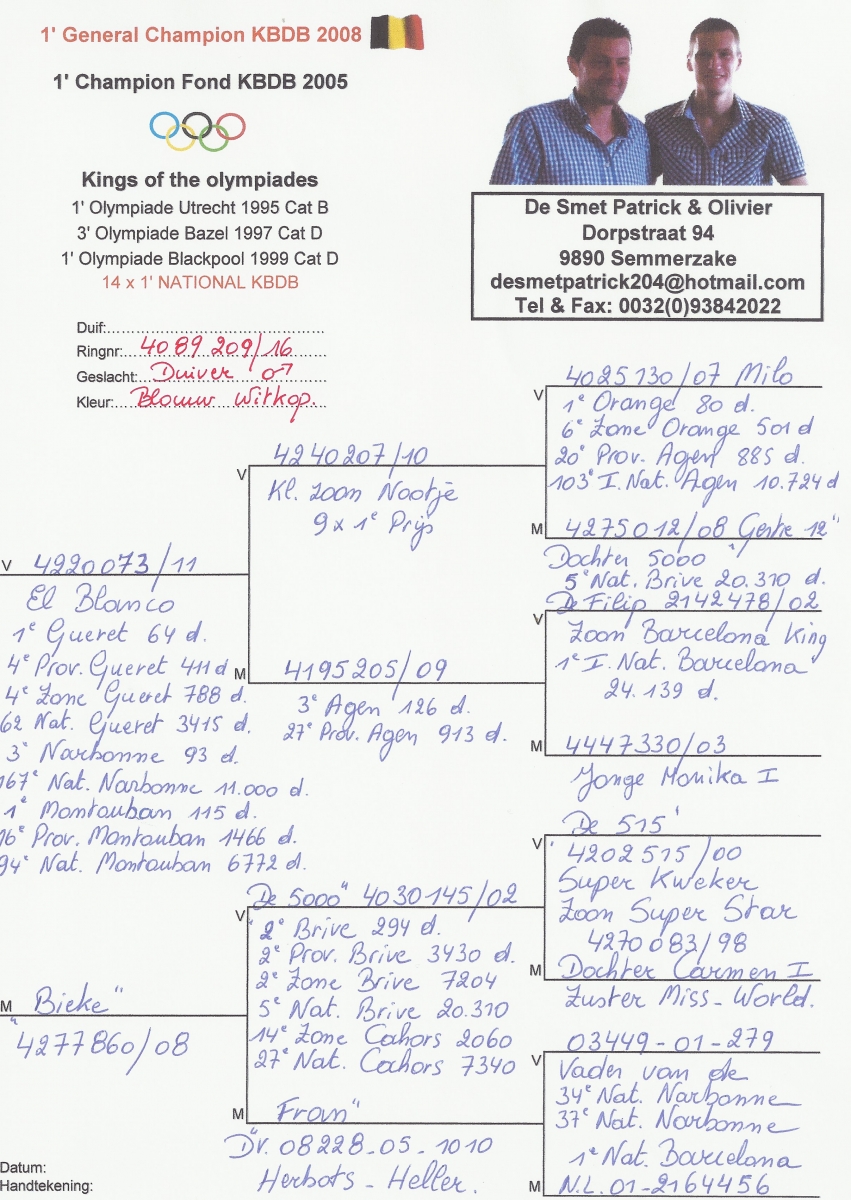 1' General Champion KBDB 2008
1' Champion Fond KBDB 2005
Kings of the olympiades
1' Olympiade Utrecht 1995 Cat B
3' Olympiade Bazel 1997 Cat D
1' Olympiade Blackpool 1999 Cat D
14 x 1' NATIONAL KBDB
De Smet Patrick & Olivier
Dorpstraat 94
9890 Semmerzake
desmetpatrick204@hotmail.com
Tel & Fax: 0032(0)93842022
Duif:
Ringnr: 4089 209/16
Geslacht: Duiver ♂
Kleur: Blauw Witkop.
V 4220073/11
El Blanco
1e Gueret 64 d.
4e Prov. Gueret 411 d
4e Zone Gueret 788 d.
62 Nat. Gueret 3415 d.
3e Narbonne 93 d.
167e Nat. Narbonne 11.000 d.
1e Montauban 115 d.
16e Prov. Montauban 1466 d.
94e Nat. Montauban 6772 d.
M Bieke"
"4277860/08
V 4240207/10
Kl. Zoon Nootje
9 x 1e Prijs
M 4195205/09
3e Agen 126 d.
27e Prov. Agen 913 d.
De 5000" 4030145/02
V "2e Brive 294 d.
2e Prov. Brive 3430 d.
2e Zone Brive 7204
5e Nat. Brive 20.310
14e Zone Cahors 2060
27e Nat. Cahors 7340
M Fran"
"Dv. 08228-05-1010
Herbots - Heller.
4025130/07 Milo
V 1e Orange 80 d.
6e Zone Orange 501 d
20e Prov. Agen 885 d.
103e I. Nat. Agen 10.724 d
M 4275012/08 Gentse 12"
Dochter 5000 "
5e Nat. Brive 20.310 d.
De Filip 2142478/02
V Zoon Barcelona King
1e I. Nat. Barcelona
24.139 d.
M 4447330/03
Jonge Monika I
De 515'
V ' 4202515/00
Super Kweker
Zoon Super Star
4270083/98
M Dochter Carmen I
Zuster Miss-World.
03449-01-279
V Vader van de
34e Nat. Narbonne
37e Nat. Narbonne
1e Nat. Barcelona
M N.L. 01-2164456
Datum:
Handtekening: